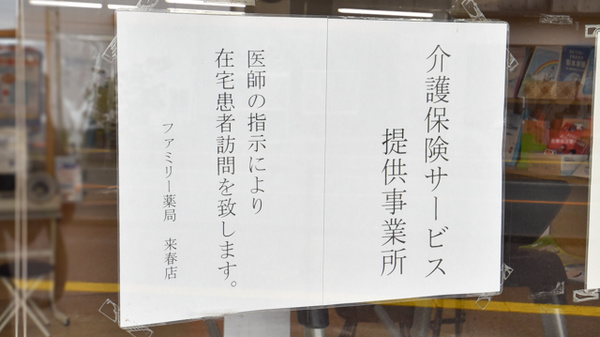 介護保険サービス
提供事業所
医師の指示により
在宅患者訪問を致します。
ファミリー薬局 来春店